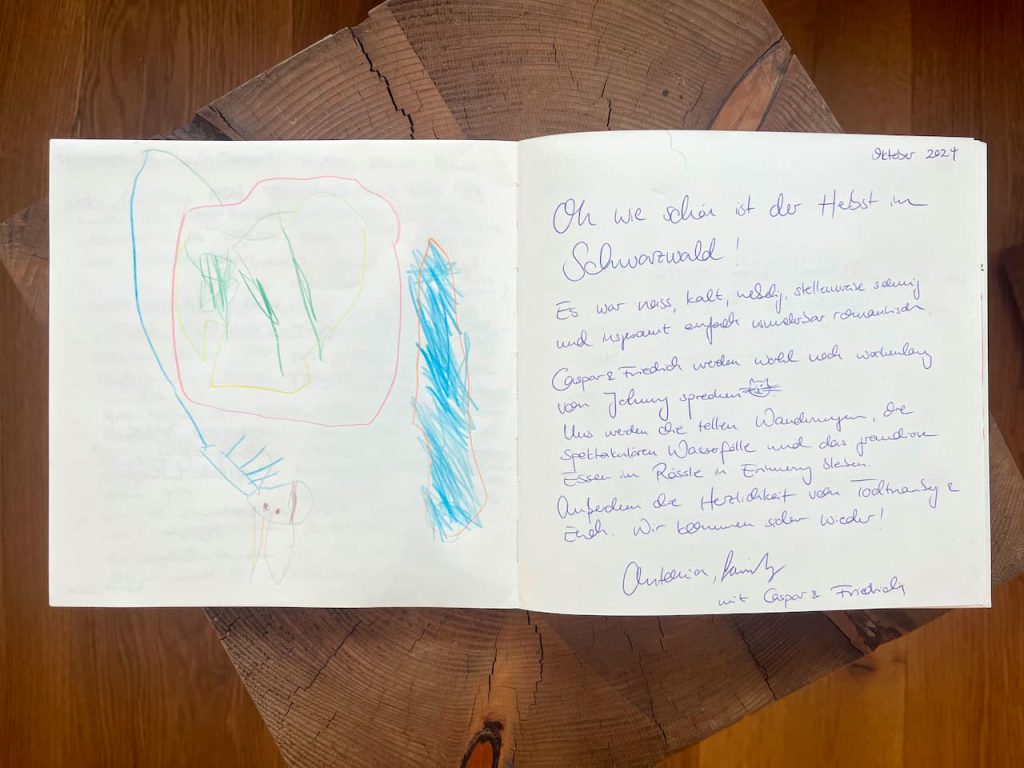 Oktober 2024
Oh wie schön ist der Herbst im
Schwarzwald!
Es war nass, kalt, neblig, stellenweise sonnig
und insgesamt einfach wunderbar romantisch.
Caspar & Friedrich werden wohl noch wochenlang
von sprechen
Uns werden die tollen Wanderungen, die
spektakulären Wasserfälle und das grandiose
Essen im Rössle in Erinnerung bleiben.
Außerdem die Herzlichkeit von &
Euch. Wir kommen sicher wieder!
mit Caspar & Friedrich